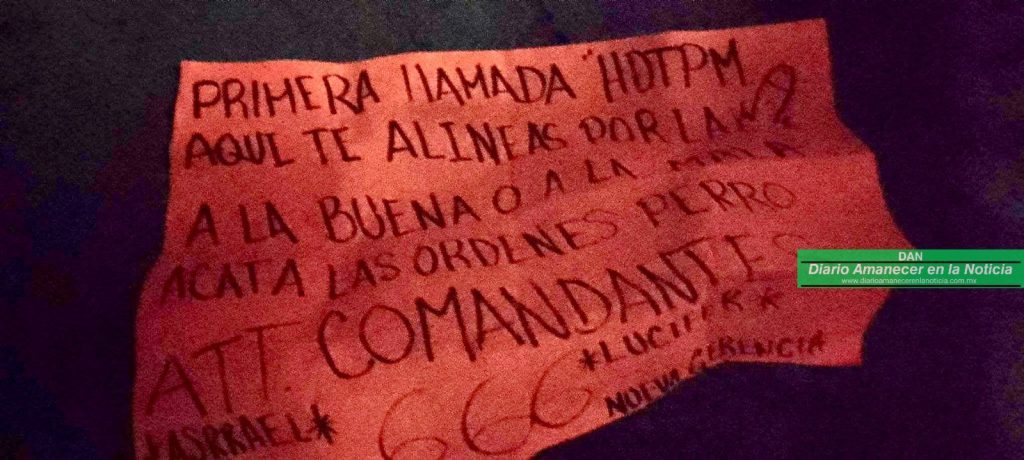 PRIMERA llAMADA "HDTPM
AQUI TE ALINEAS POR LA
A LA BUENA O A LA MALA
ACATA LAS ORDENES PERRO
ATT. COMANDANTES
*LUCIFER*
666
NUEVA GERENCIA
DAN
Diario Amanecer en la Noticia
www.diarioamanecerenlanoticia.com.mx